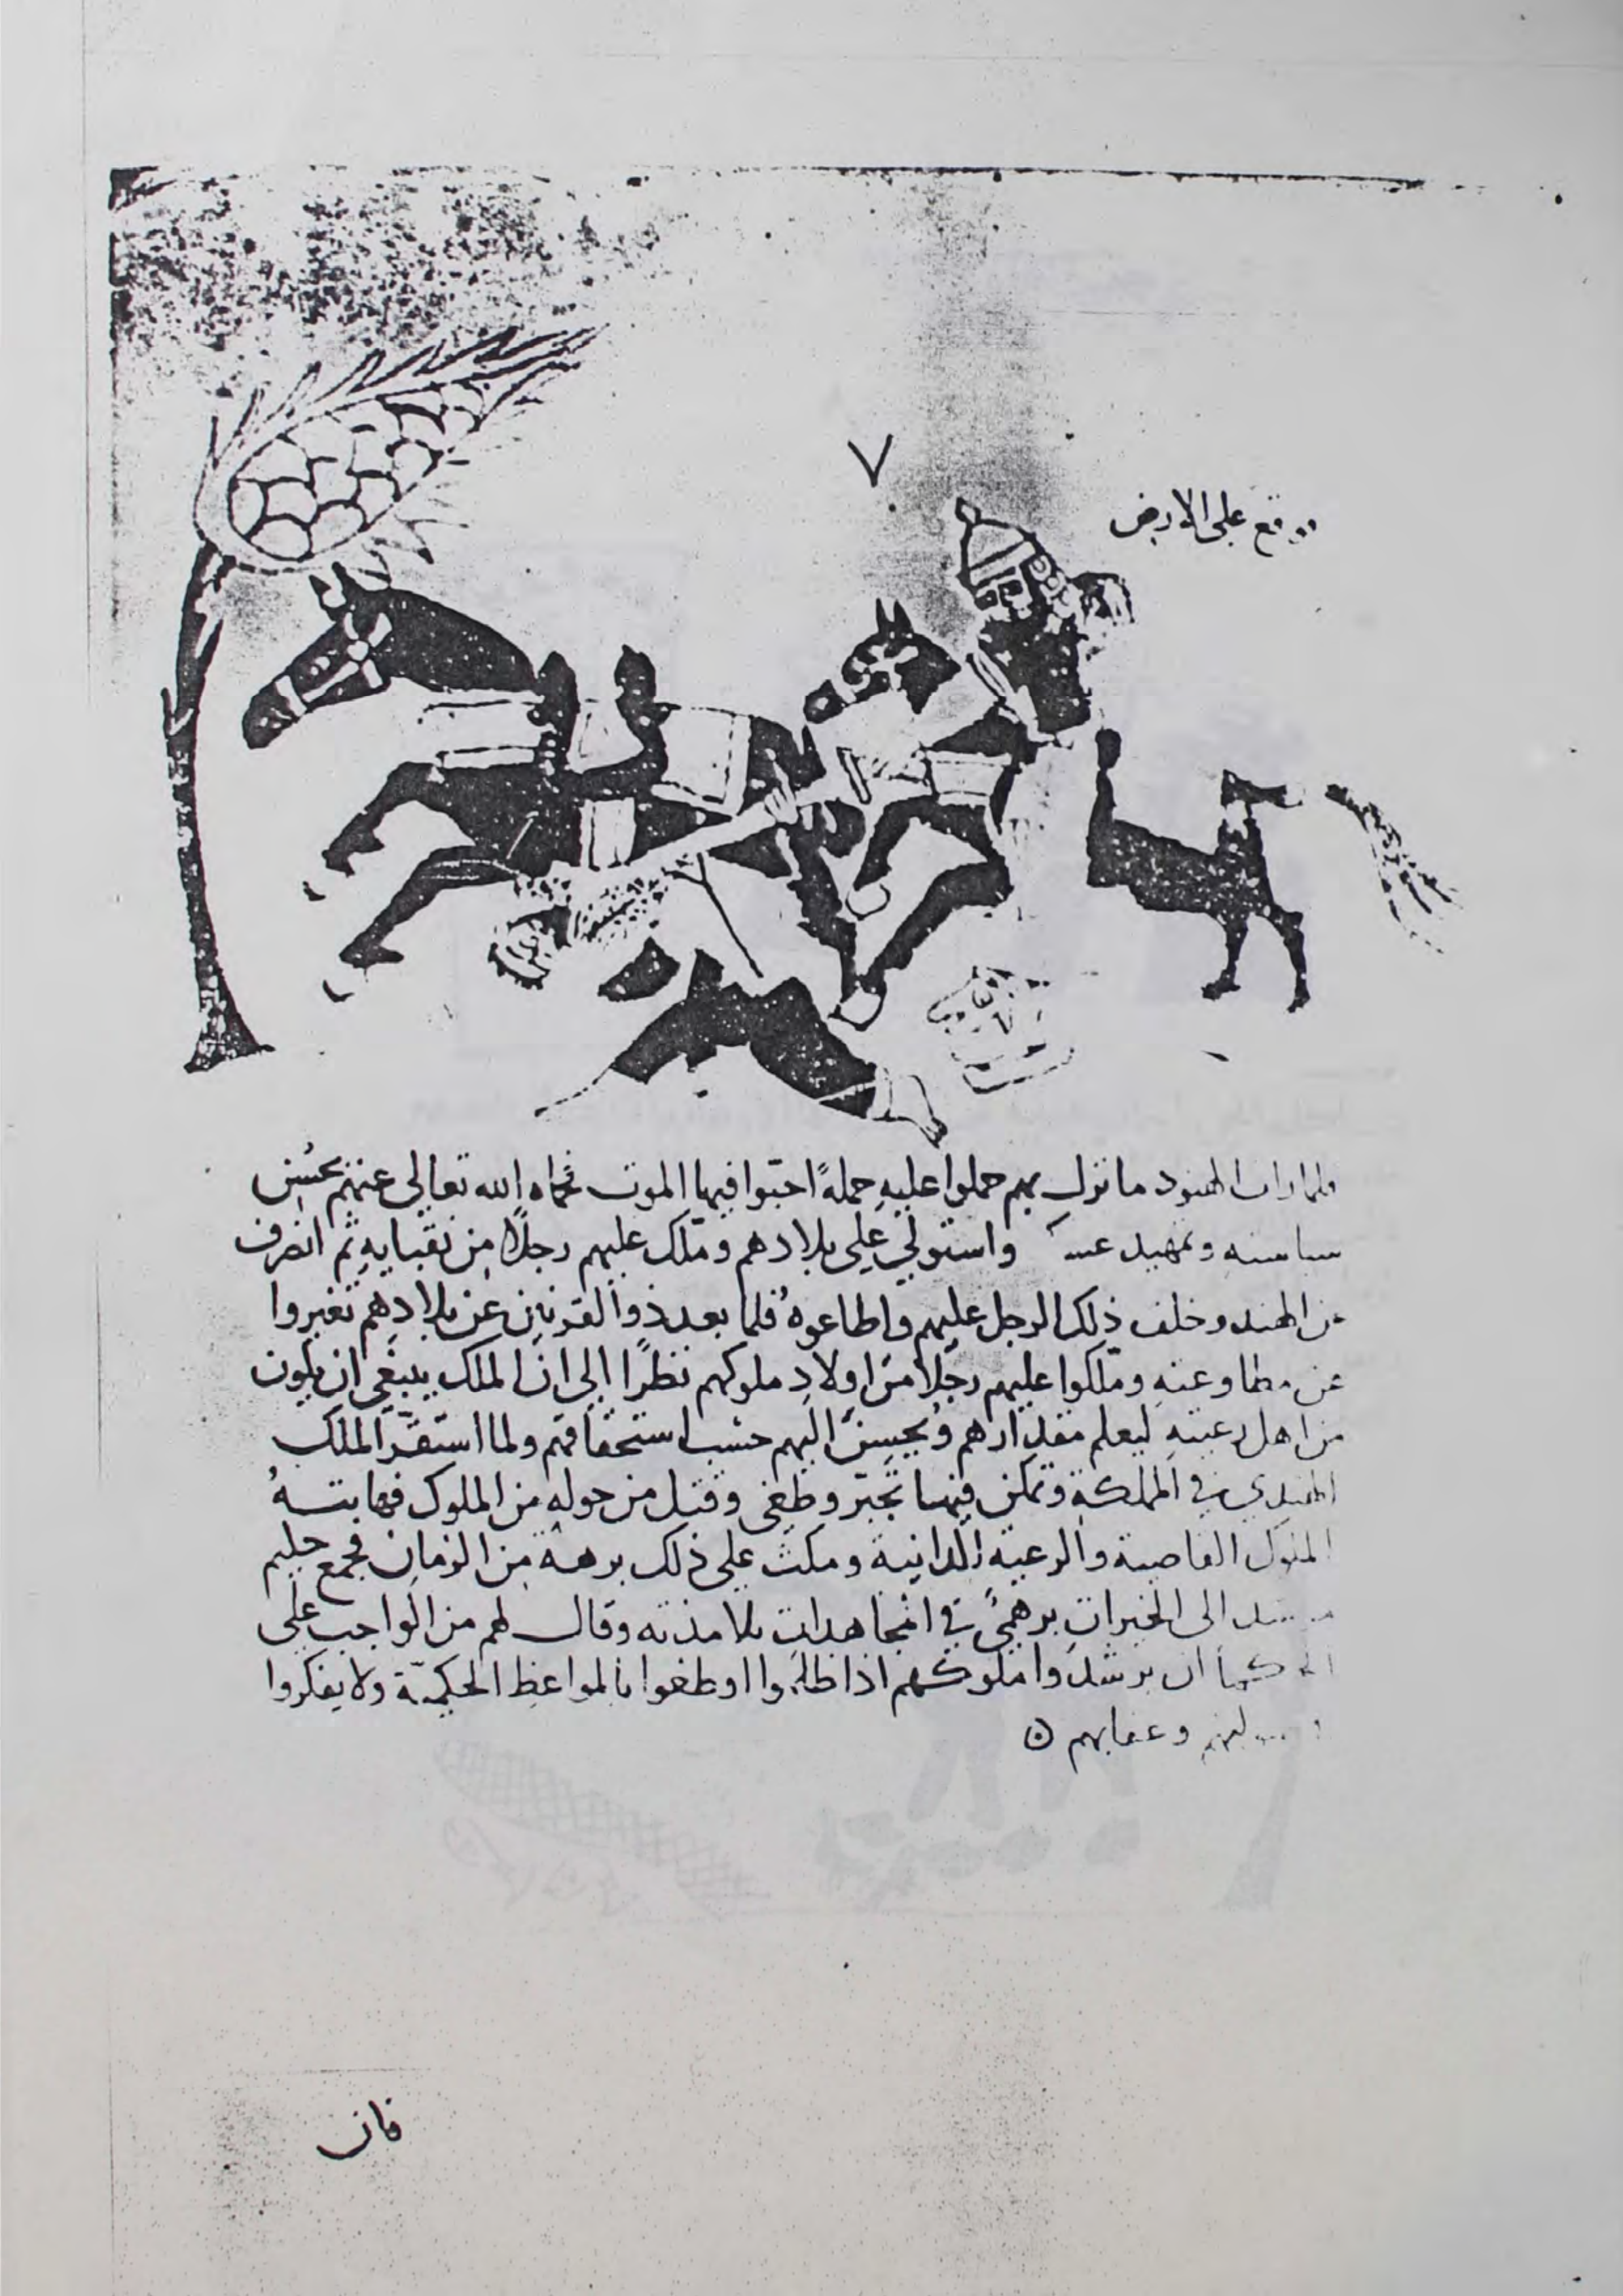 ٧
ووقع على الارض
فلما رات الهنود ما نزل بهم حملوا عليه حملةً احبّوا فيها الموت فحماه الله تعالى عنهم بحسن
سياسته وتمهيد واستولى على بلادهم وملّك عليهم رجلًا من نقبايه ثم انصرف
عن الهند وخلف ذلك الرجل عليهم واطاعوهُ فلما بعد ذوا القرنين عن بلادهم تغيروا
عن مطاوعته وملّكوا عليهم رجلًا من اولاد ملوكهم نظرًا الى ان الملك ينبغي ان يكون
من اهل رعيته ليعلم مقدارهم ويحسن اليهم حسب استحقاقهم ولما استقرّ الملك
الهندي في المملكة وتمكن فيها تجبّر وطغى وقتل من حوله من الملوك فهابتهُ
الملوك القاصية والرعية الدانية ومكث على ذلك برهة من الزمان فجمع حليم
الى الخيرات برهميٌ في تلامذته وقال لهم من الواجب على
الحكما ان يرشدوا ملوكهم اذا ظلموا او طغوا بالمواعظ الحكميّة ولا يفكروا
وعقابهم ⊙
فان